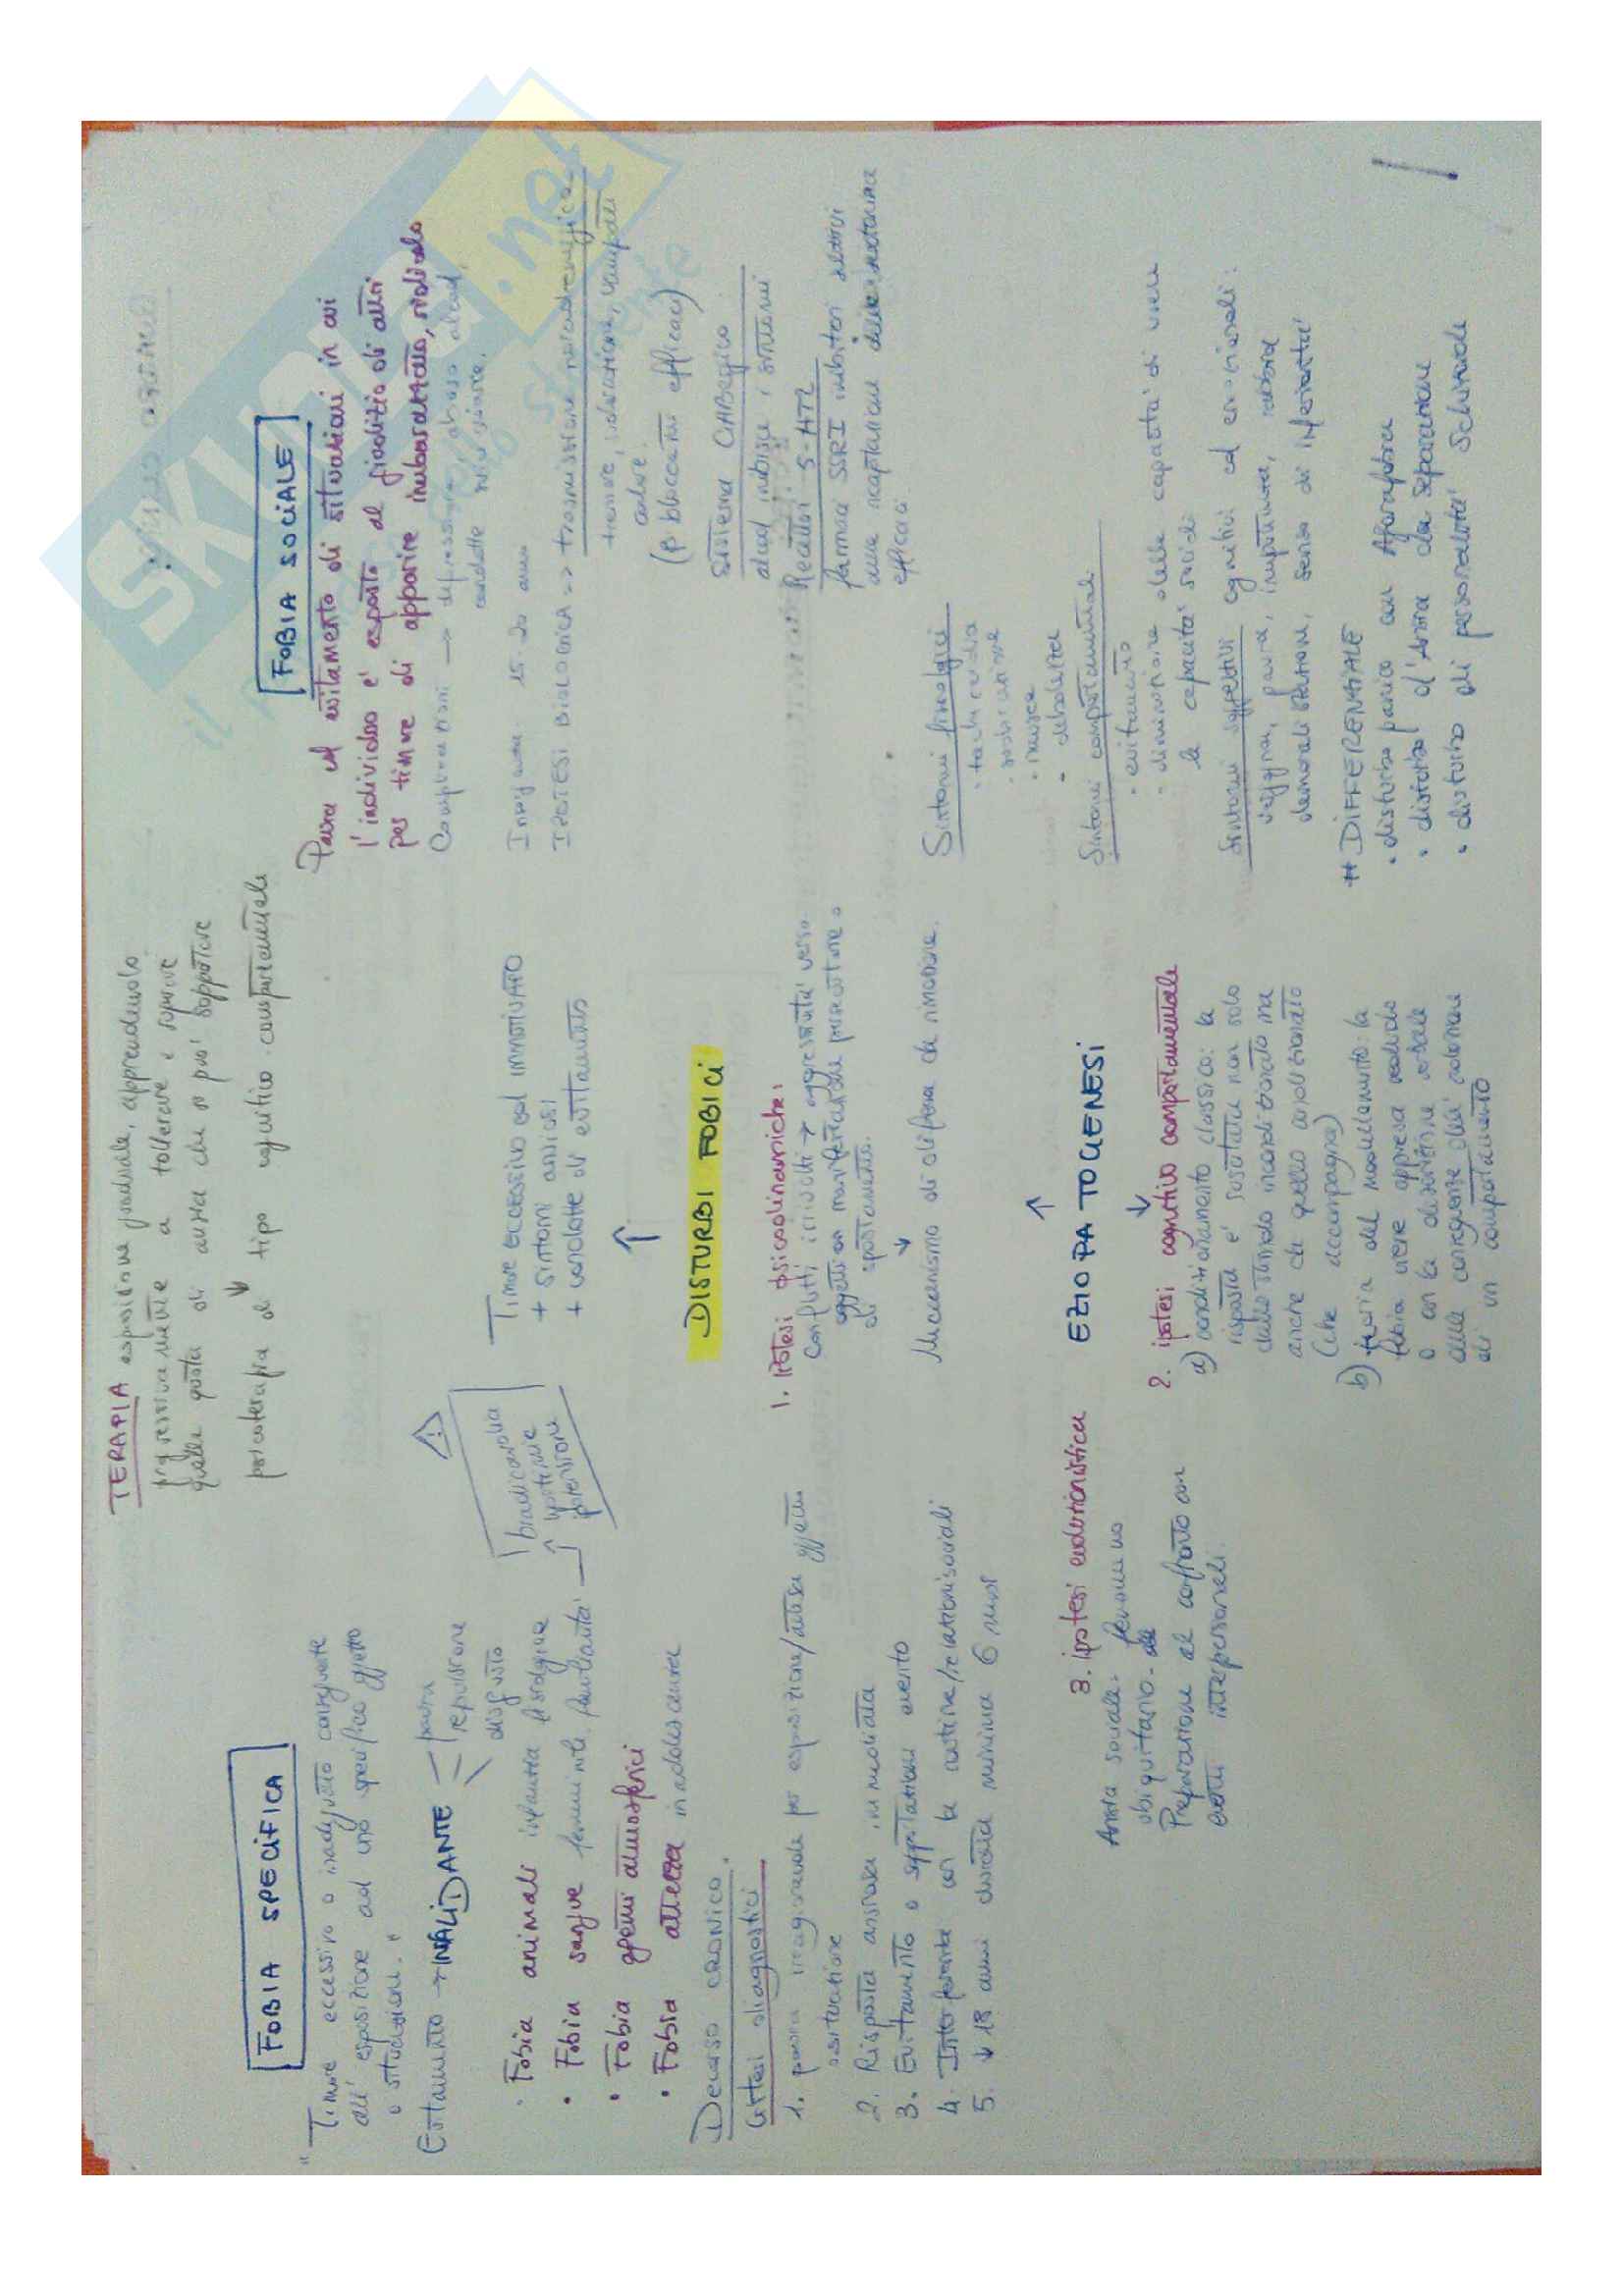 TERAPIA esposizione graduale, apprendendolo
progressivamente a tollerare e
quella quota di ansia che si può sopportare
psicoterapia di tipo cognitivo-comportamentale
FOBIA SPECIFICA
"Timore eccessivo o inadeguato conseguente
all'esposizione ad uno specifico oggetto
o situazione."
Evitamento → INVALIDANTE
paura
repulsione
disgusto
• Fobia animali infantile
• Fobia sangue femminile. familiarità
• Fobia agenti atmosferici
• Fobia altezza in adolescenza
bradicardia
ipotensione
Decorso cronico.
Criteri diagnostici
1. paura irragionevole per esposizione/attesa oggetto
o situazione
2. Risposta ansiosa immediata
3. Evitamento o sopportazione evento
4. Interferente con la routine/relazioni sociali
5. ↓ 18 anni durata minima 6 mesi
Timore eccessivo ed immotivato
+ sintomi ansiosi
+ condotte di evitamento
DISTURBI FOBICI
1. Ipotesi psicodinamiche:
conflitti irrisolti → aggressività verso
oggetto
di spostamento.
Meccanismo di difesa da rimozione.
EZIOPATOGENESI
2. ipotesi cognitivo comportamentale
a) condizionamento classico: la
risposta è suscitata non solo
dallo stimolo incondizionato ma
anche da quello condizionato
(che accompagna)
b) teoria del modellamento: la
fobia viene appresa
o con la descrizione verbale
alle conseguenze
di un comportamento
3. ipotesi evoluzionistica
Ansia sociale - fenomeno
ubiquitario.
Preparazione al confronto con
eventi interpersonali.
FOBIA SOCIALE
Paura ed evitamento di situazioni in cui
l'individuo è esposto al giudizio di altri
per timore di apparire imbarazzato, ridicolo
Complicazioni → depressione, abuso alcool,
condotte
15-20 anni
IPOTESI BIOLOGICA => trasmissione noradrenergica
tremore, sudorazione, vampate
calore.
(β bloccanti efficaci)
Sistema GABergico
alcool inibisce i sintomi
Recettori 5-HT2
farmaci SSRI inibitori selettivi
della ricaptazione della serotonina
efficaci
Sintomi fisiologici
• tachicardia
• sudorazione
• nausea
• debolezza
Sintomi comportamentali
• evitamento
• diminuzione delle capacità di usare
le capacità sociali
Sintomi soggettivi cognitivi ed emozionali:
vergogna, paura, rabbia
demoralizzazione, senso di inferiorità
# DIFFERENZIALE
• disturbo panico con Agorafobia
• disturbo d'Ansia da Separazione
• disturbo di personalità Schizoide
SKUOLA.net